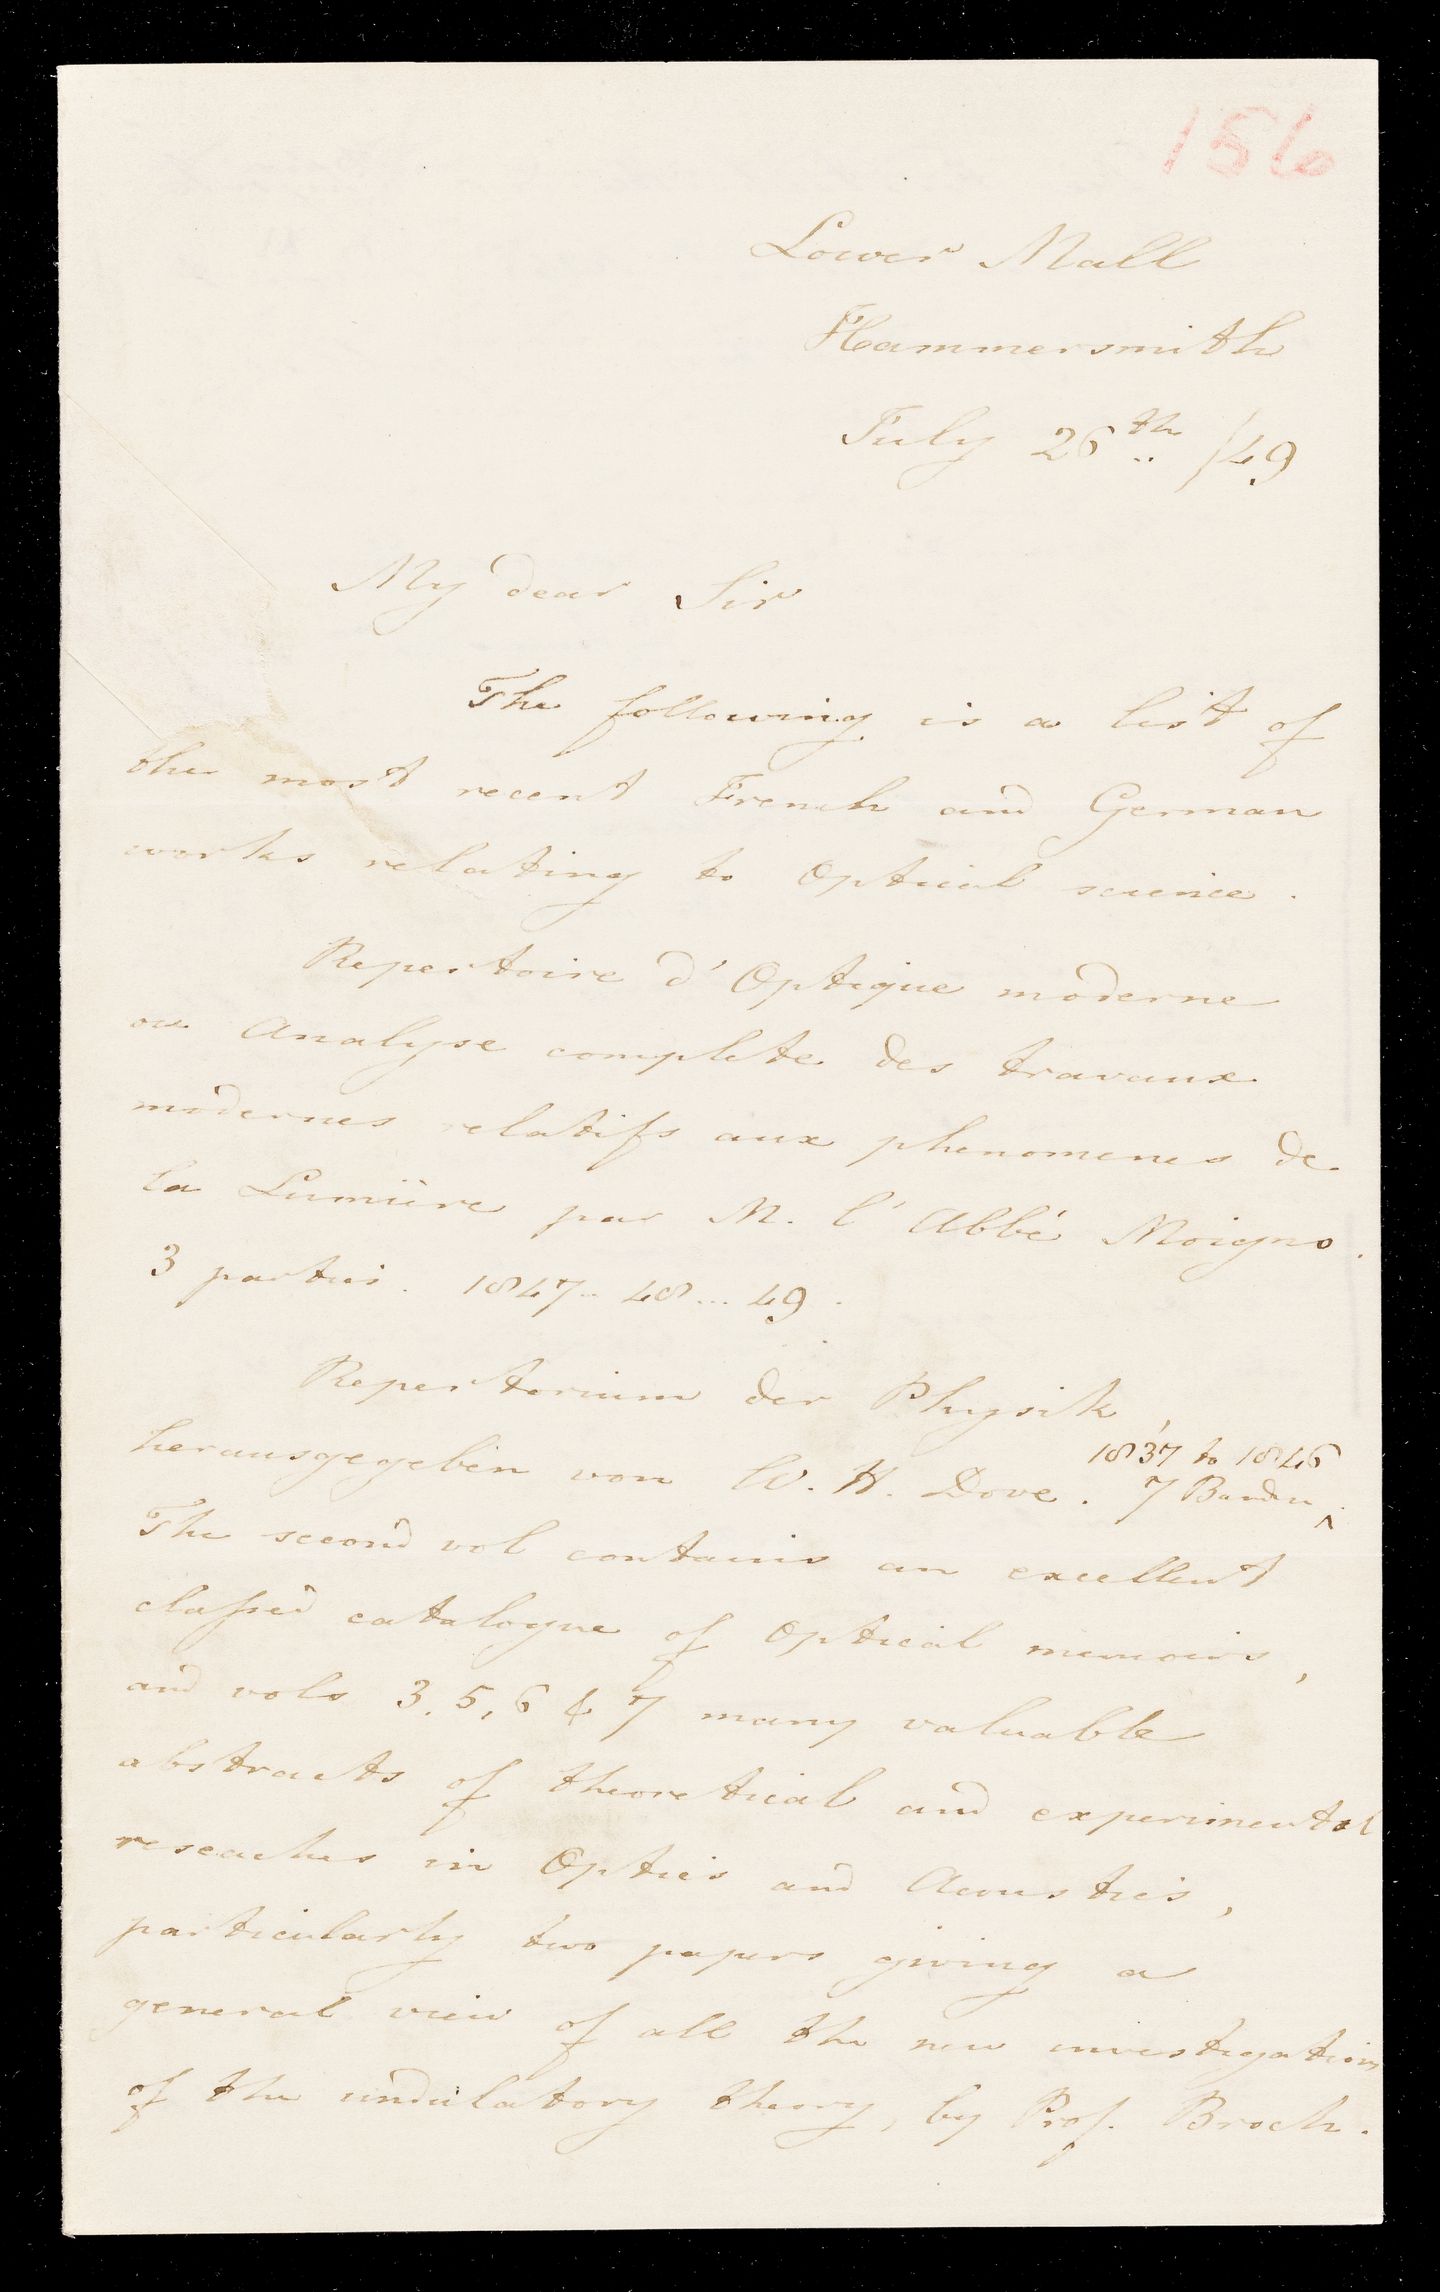 156
Lower Mall
Hammersmith
July 26th /49
My dear Sir
The following is a list of
the most recent French and German
works relating to Optical science.
Repertoire d'Optique moderne
ou Analyse complete des travaux
modernes relatifs aux phenomenes de
la Lumière par M. l'Abbé Moigno.
3 parties. 1847-48-49.
Repertorium der Physik,
herausgegeben von W. H. Dove. 7 Banden ^ 1837 to 1846
The second vol contains an excellent
classed catalogue of Optical memoirs,
and vols 3, 5, 6 & 7 many valuable
abstracts of theoretical and experimental
reseaches in Optics and Acoustics,
particularly two papers giving a
general view of all the new investigations
of the undulatory theory, by Prof. Broch.